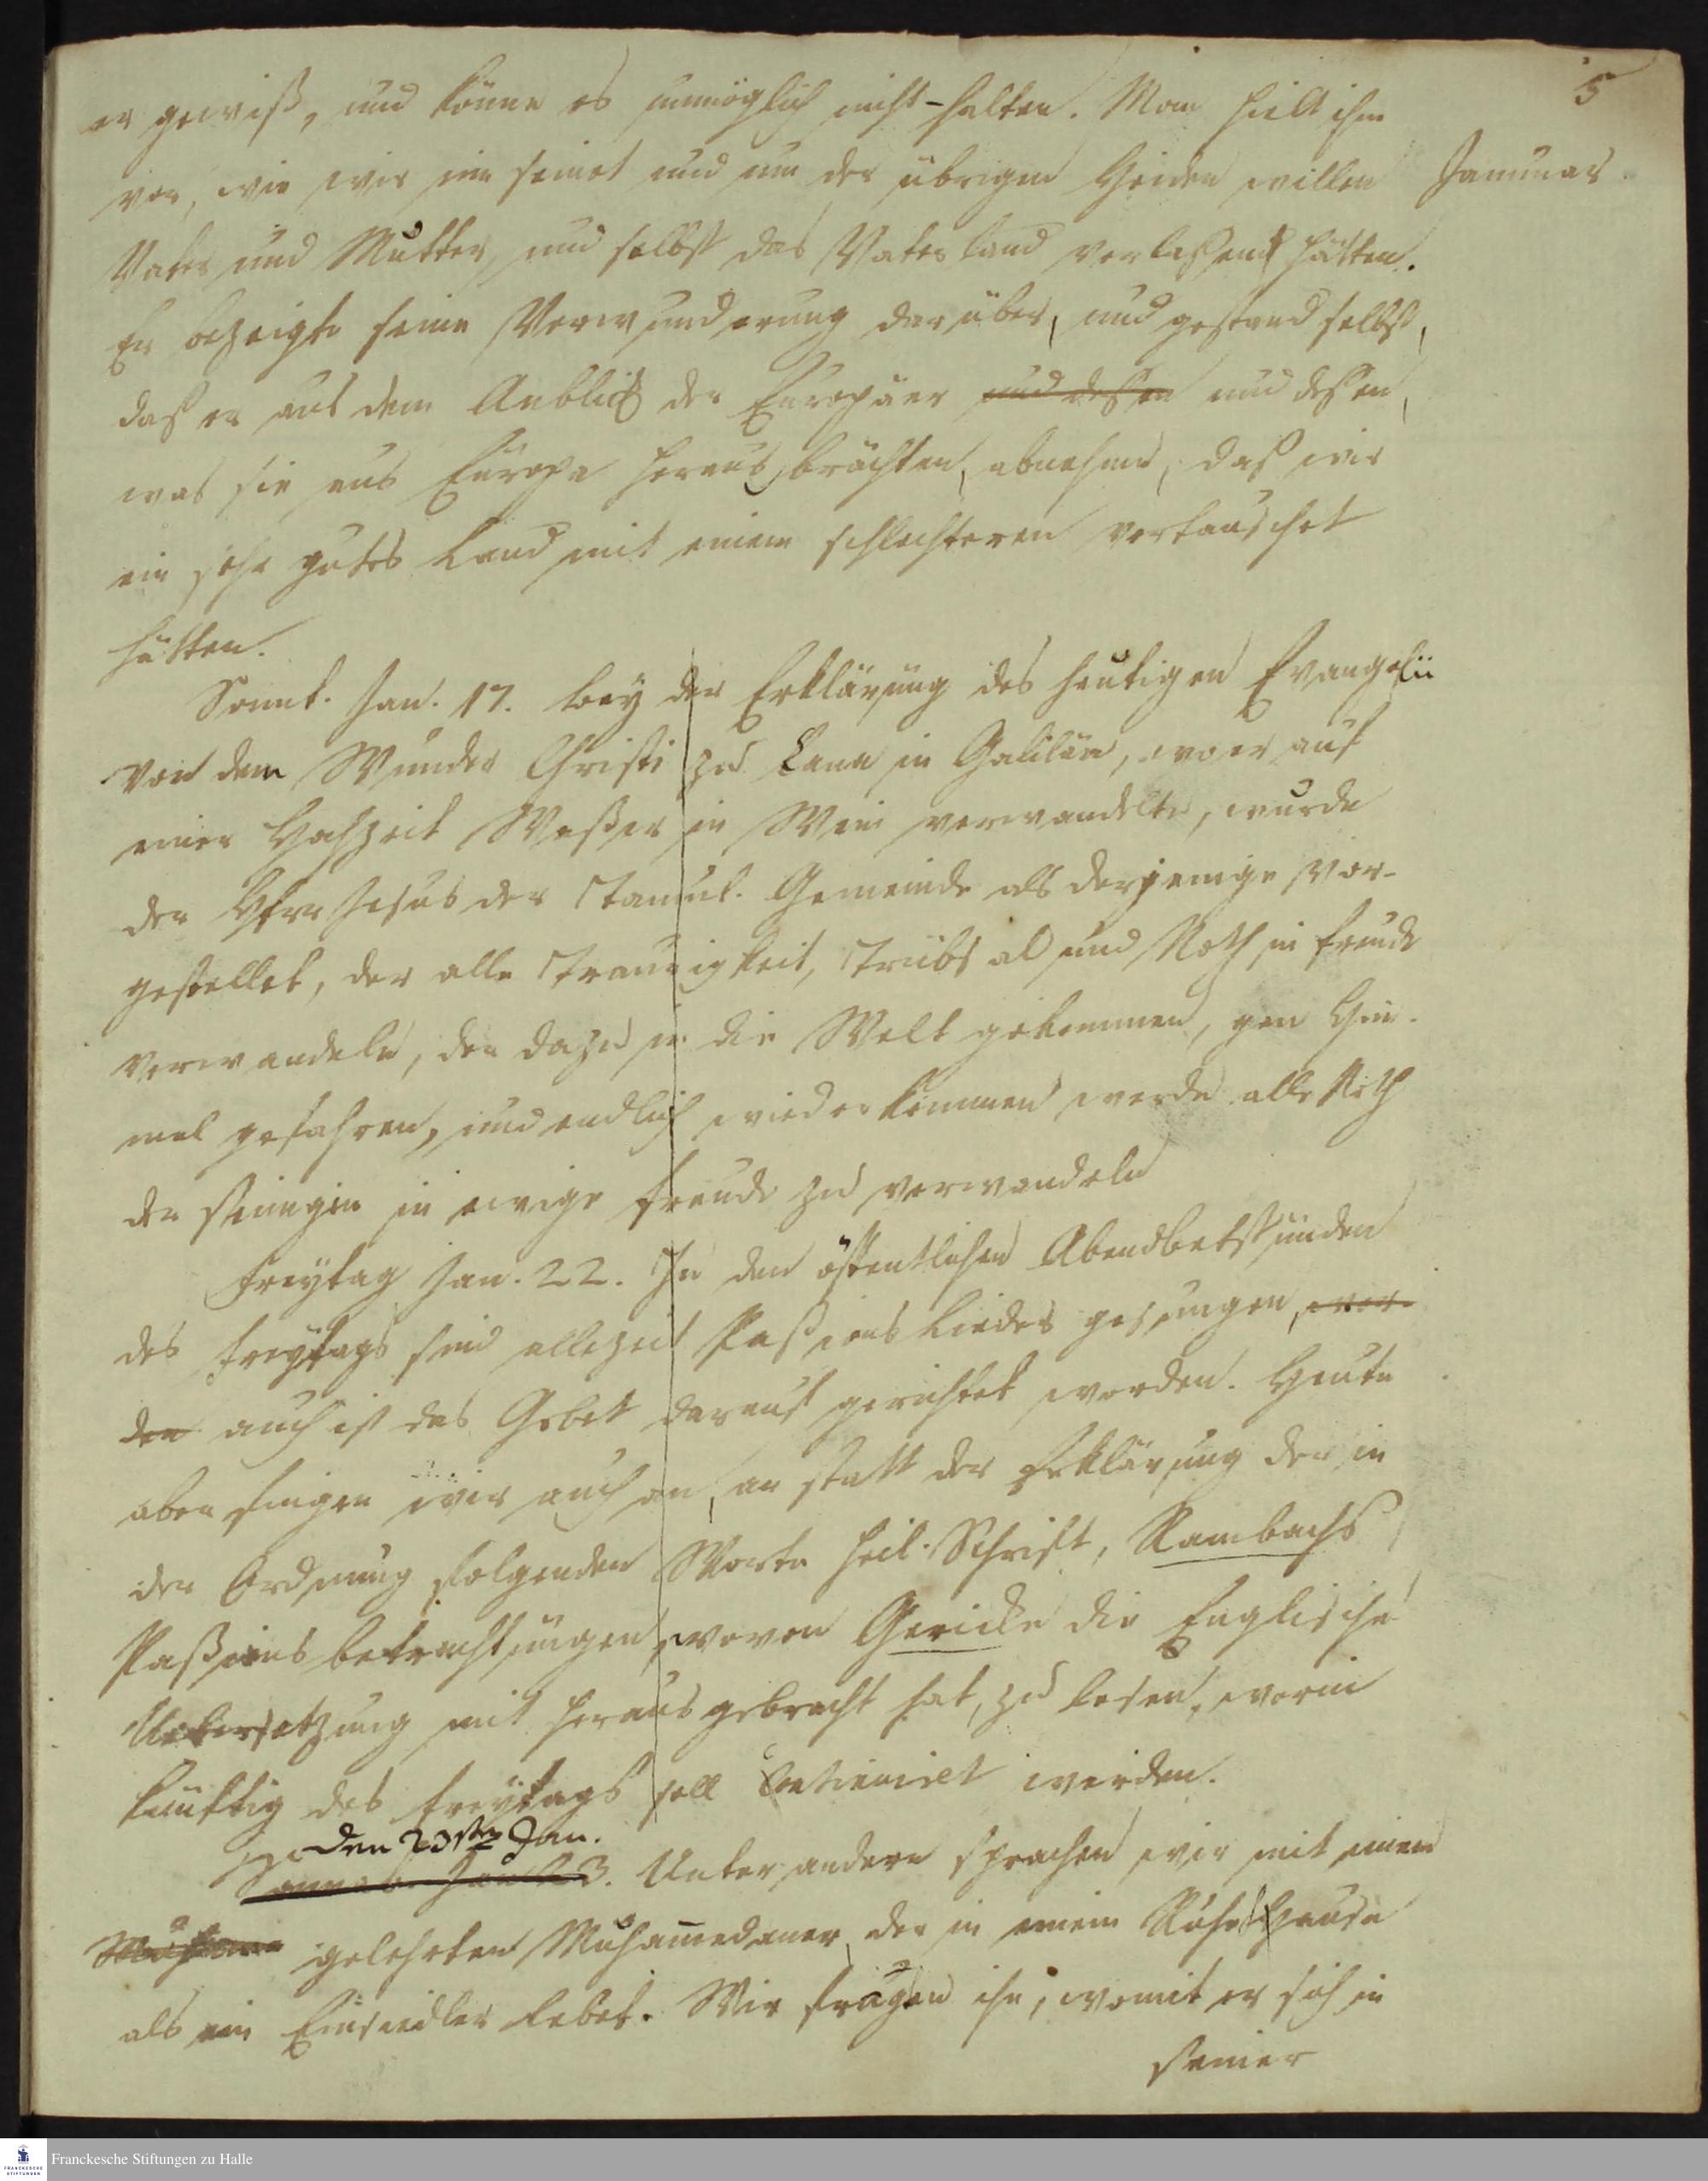 5
er gewiß, und könne es unmöglich nicht-halten. Man hielt ihm
vor, wie wir um seinet und um der übrigen Heiden willen
Januar.
Vater und Mutter, und selbst das Vaterland verlaßen hätten.
Er bezeigte seine Verwunderung darüber, und gestand selbst,
daß er aus dem Anblick der Europäer und deßen und deßen,
was sie aus Europa heraus brächten, abnehme, daß wir
ein sehr gutes Land mit einem schlechteren vertauschet
hätten.
Sonnt. Jan. 17. bey der Erklärung des heutigen Evangelii
von dem Wunder Christi zu Cana in Galiläa, wo er auf
einer Hochzeit Waßer in Wein verwandelte, wurde
der Herr Jesus der Tamul. Gemeinde als derjenige vor-
gestellet, der alle Traurigkeit, Trübsal und Noth in Freude
verwandele, der dazu in die Welt gekommen, gen Him-
mel gefahren, und endlich wiederkommen werde alle Noth
der seinigen in ewige Freude zu verwandeln
Freytag Jan. 22. In den öffentlichen Abendbetstunden
des Freytags sind allezeit Paßions Lieder gesungen, wor-
den auch ist das Gebet darauf gerichtet worden. Heute
aber fingen wir auch an, an statt der Erklärung der in
der Ordnung folgenden Worte heil. Schrift, Rambachs
Paßions betrachtungen, wovon Gericke die Englische
Uebersetzung mit heraus gebracht hat, zu lesen, worin
künftig des Freytags soll Continuiret werden.
den 23sten Jan.
Sonnab. Jan. 23. Unter andern sprachen wir mit einem
gelehrten Muhammedaner, der in einem Ruhe Hause
als ein Einsiedler lebet. Wir fragen ihn, womit er sich in
seiner
Franckesche Stiftungen zu Halle